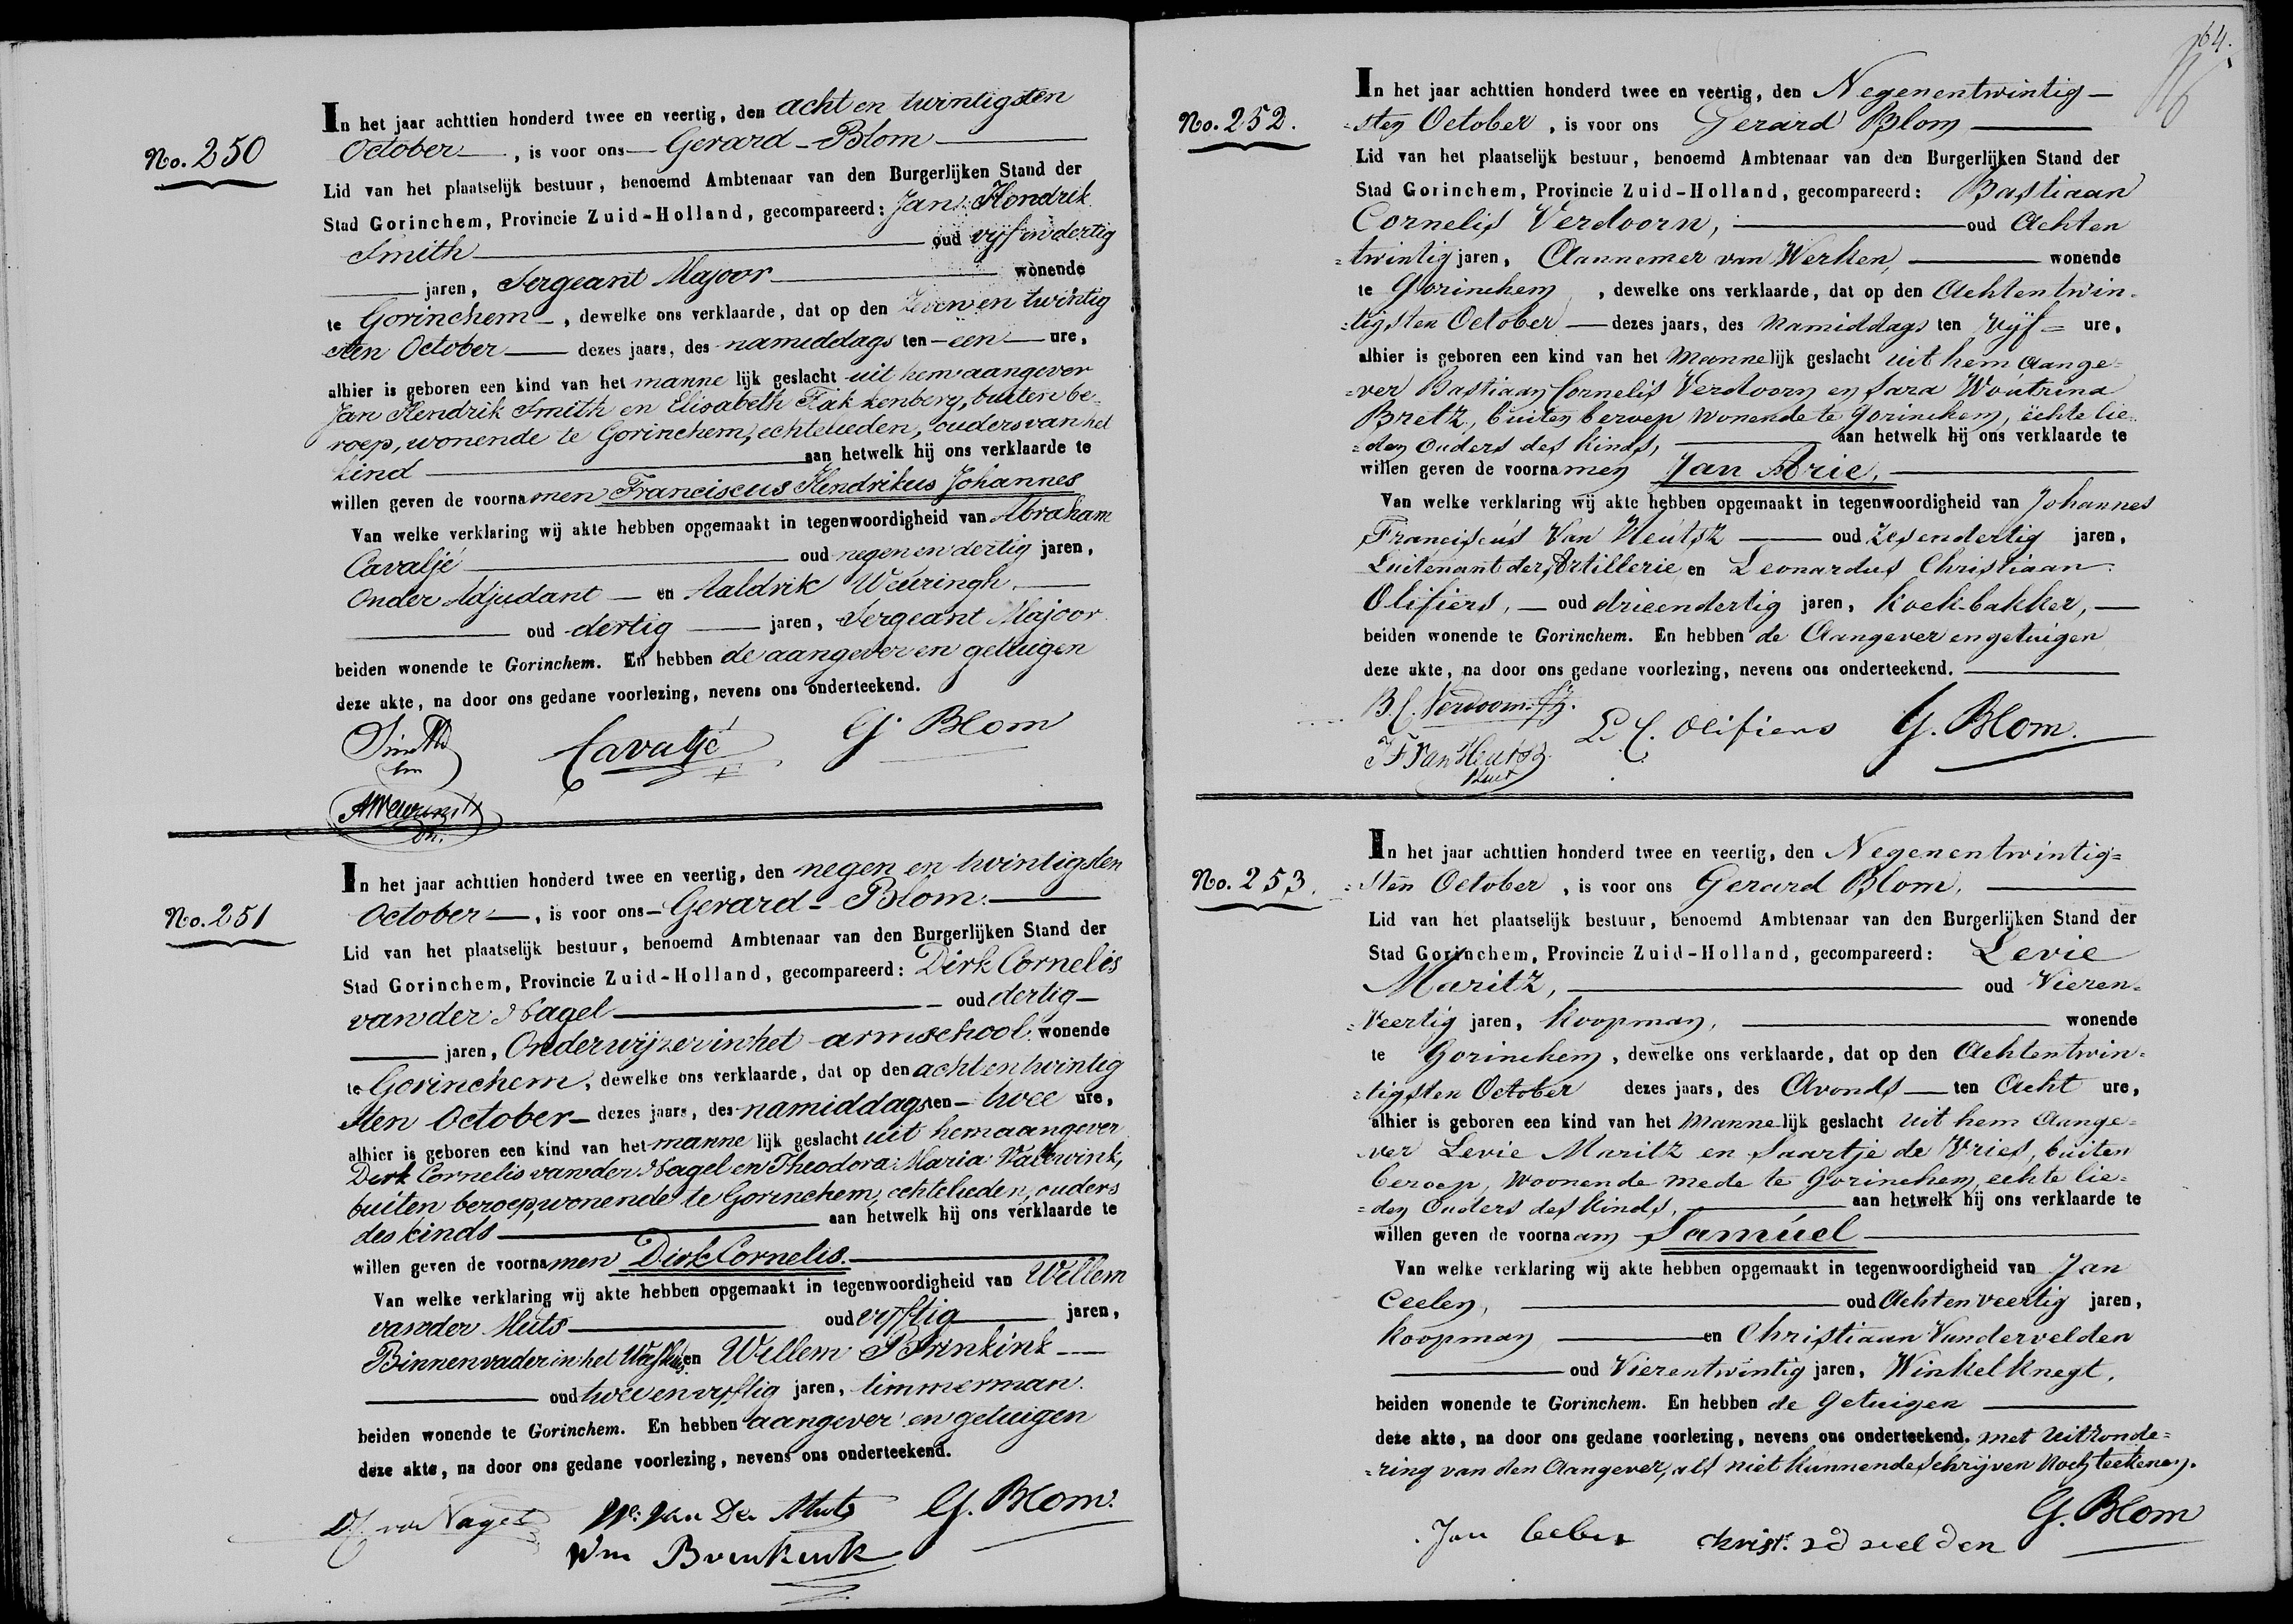 No. 250
In het jaar achttien honderd twee en veertig, den acht en twintigsten
October, is voor ons Gerard Blom
Lid van het plaatselijk bestuur, benoemd Ambtenaar van den Burgerlijken Stand der
Stad Gorinchem, Provincie Zuid-Holland, gecompareerd: Jan Hendrik
Smith oud vyf en dertig
jaren, Sergeant Majoor wonende
te Gorinchem, dewelke ons verklaarde, dat op den zeven en twintig
sten October dezes jaars, des namiddags ten een ure,
alhier is geboren een kind van het mannelijk geslacht uit hem aangever
Jan Hendrik Smith en Elisabeth Fakkenberg, buiten be-
roep, wonende te Gorinchem, echtelieden, ouders van het
kind aan hetwelk hij ons verklaarde te
willen geven de voornamen Franciscus Hendrikus Johannes
Van welke verklaring wij akte hebben opgemaakt in tegenwoordigheid van Abraham
Cavaljé oud negen en dertig jaren,
Onder Adjudant en Aaldrik Weuringh
oud dertig jaren, Sergeant Majoor
beiden wonende te Gorinchem. En hebben de aangever en getuigen
deze akte, na door ons gedane voorlezing, nevens ons onderteekend.
Smith
Cavaljé
G. Blom
AWeuringh
No. 251
In het jaar achttien honderd twee en veertig, den negen en twintigsten
October, is voor ons Gerard Blom
Lid van het plaatselijk bestuur, benoemd Ambtenaar van den Burgerlijken Stand der
Stad Gorinchem, Provincie Zuid-Holland, gecompareerd: Dirk Cornelis
van der Nagel oud dertig
jaren, Onderwijzer in het armschool wonende
te Gorinchem, dewelke ons verklaarde, dat op den acht en twintig
sten October dezes jaars, des namiddags ten twee ure,
alhier is geboren een kind van het mannelijk geslacht uit hem aangever
Dirk Cornelis van der Nagel en Theodora Maria Valewink,
buiten beroep, wonende te Gorinchem, echtelieden, ouders
des kinds aan hetwelk hij ons verklaarde te
willen geven de voornamen Dirk Cornelis.
Van welke verklaring wij akte hebben opgemaakt in tegenwoordigheid van Willem
van der Muts oud vyftig jaren,
Binnenvader in het Weeshuis en Willem Brinkink
oud twee en vyftig jaren, timmerman.
beiden wonende te Gorinchem. En hebben aangever en getuigen
deze akte, na door ons gedane voorlezing, nevens ons onderteekend.
Nagel
Wm. van der Muts
G. Blom.
Wm Brinkink
64.
No. 252.
In het jaar achttien honderd twee en veertig, den Negenentwintig-
=sten October, is voor ons Gerard Blom
Lid van het plaatselijk bestuur, benoemd Ambtenaar van den Burgerlijken Stand der
Stad Gorinchem, Provincie Zuid-Holland, gecompareerd: Bastiaan
Cornelis Verdoorn, oud Achten
=twintig jaren, Aannemer van Werken, wonende
te Gorinchem, dewelke ons verklaarde, dat op den Achtentwin=
=tigsten October dezes jaars, des Namiddags ten Vijf= ure,
alhier is geboren een kind van het Mannelijk geslacht uit hem Aange=
=ver Bastiaan Cornelis Verdoorn en Sara Woutrina
Bretz, buiten beroep wonende te Gorinchem, echte lie=
=den Ouders des Kinds, aan hetwelk hij ons verklaarde te
willen geven de voornamen Jan Arie,
Van welke verklaring wij akte hebben opgemaakt in tegenwoordigheid van Johannes
Franciscus Van Heutsz oud Zesendertig jaren,
Luitenant der Artillerie en Leonardus Christiaan
Olifiers, oud drieendertig jaren, Koekbakker,
beiden wonende te Gorinchem. En hebben de Aangever en getuigen
deze akte, na door ons gedane voorlezing, nevens ons onderteekend.
B.C. Verdoorn
L. C. Olifiers
G. Blom.
JF Van Heutsz
No. 253.
In het jaar achttien honderd twee en veertig, den Negenentwintig=
=sten October, is voor ons Gerard Blom,
Lid van het plaatselijk bestuur, benoemd Ambtenaar van den Burgerlijken Stand der
Stad Gorinchem, Provincie Zuid-Holland, gecompareerd: Levie
Maritz, oud Vieren=
=Veertig jaren, Koopman, wonende
te Gorinchem, dewelke ons verklaarde, dat op den Achtentwin=
=tigsten October dezes jaars, des Avonds ten Acht ure,
alhier is geboren een kind van het Mannelijk geslacht uit hem Aange=
=ver Levie Maritz en Saartje de Vries, buiten
beroep, Woonende mede te Gorinchem, echte lie=
=den Ouders des Kinds, aan hetwelk hij ons verklaarde te
willen geven de voornaam Samuel
Van welke verklaring wij akte hebben opgemaakt in tegenwoordigheid van Jan
Ceelen, oud Achtenveertig jaren,
Koopman en Christiaan Vandervelden
oud Vierentwintig jaren, Winkel Knegt,
beiden wonende te Gorinchem. En hebben de Getuigen
deze akte, na door ons gedane voorlezing, nevens ons onderteekend, met Uitzonde=
=ring van den Aangever, als niet Kunnende Schrijven Noch teekenen.
G. Blom
Jan Ceelen
Christ. vd velden